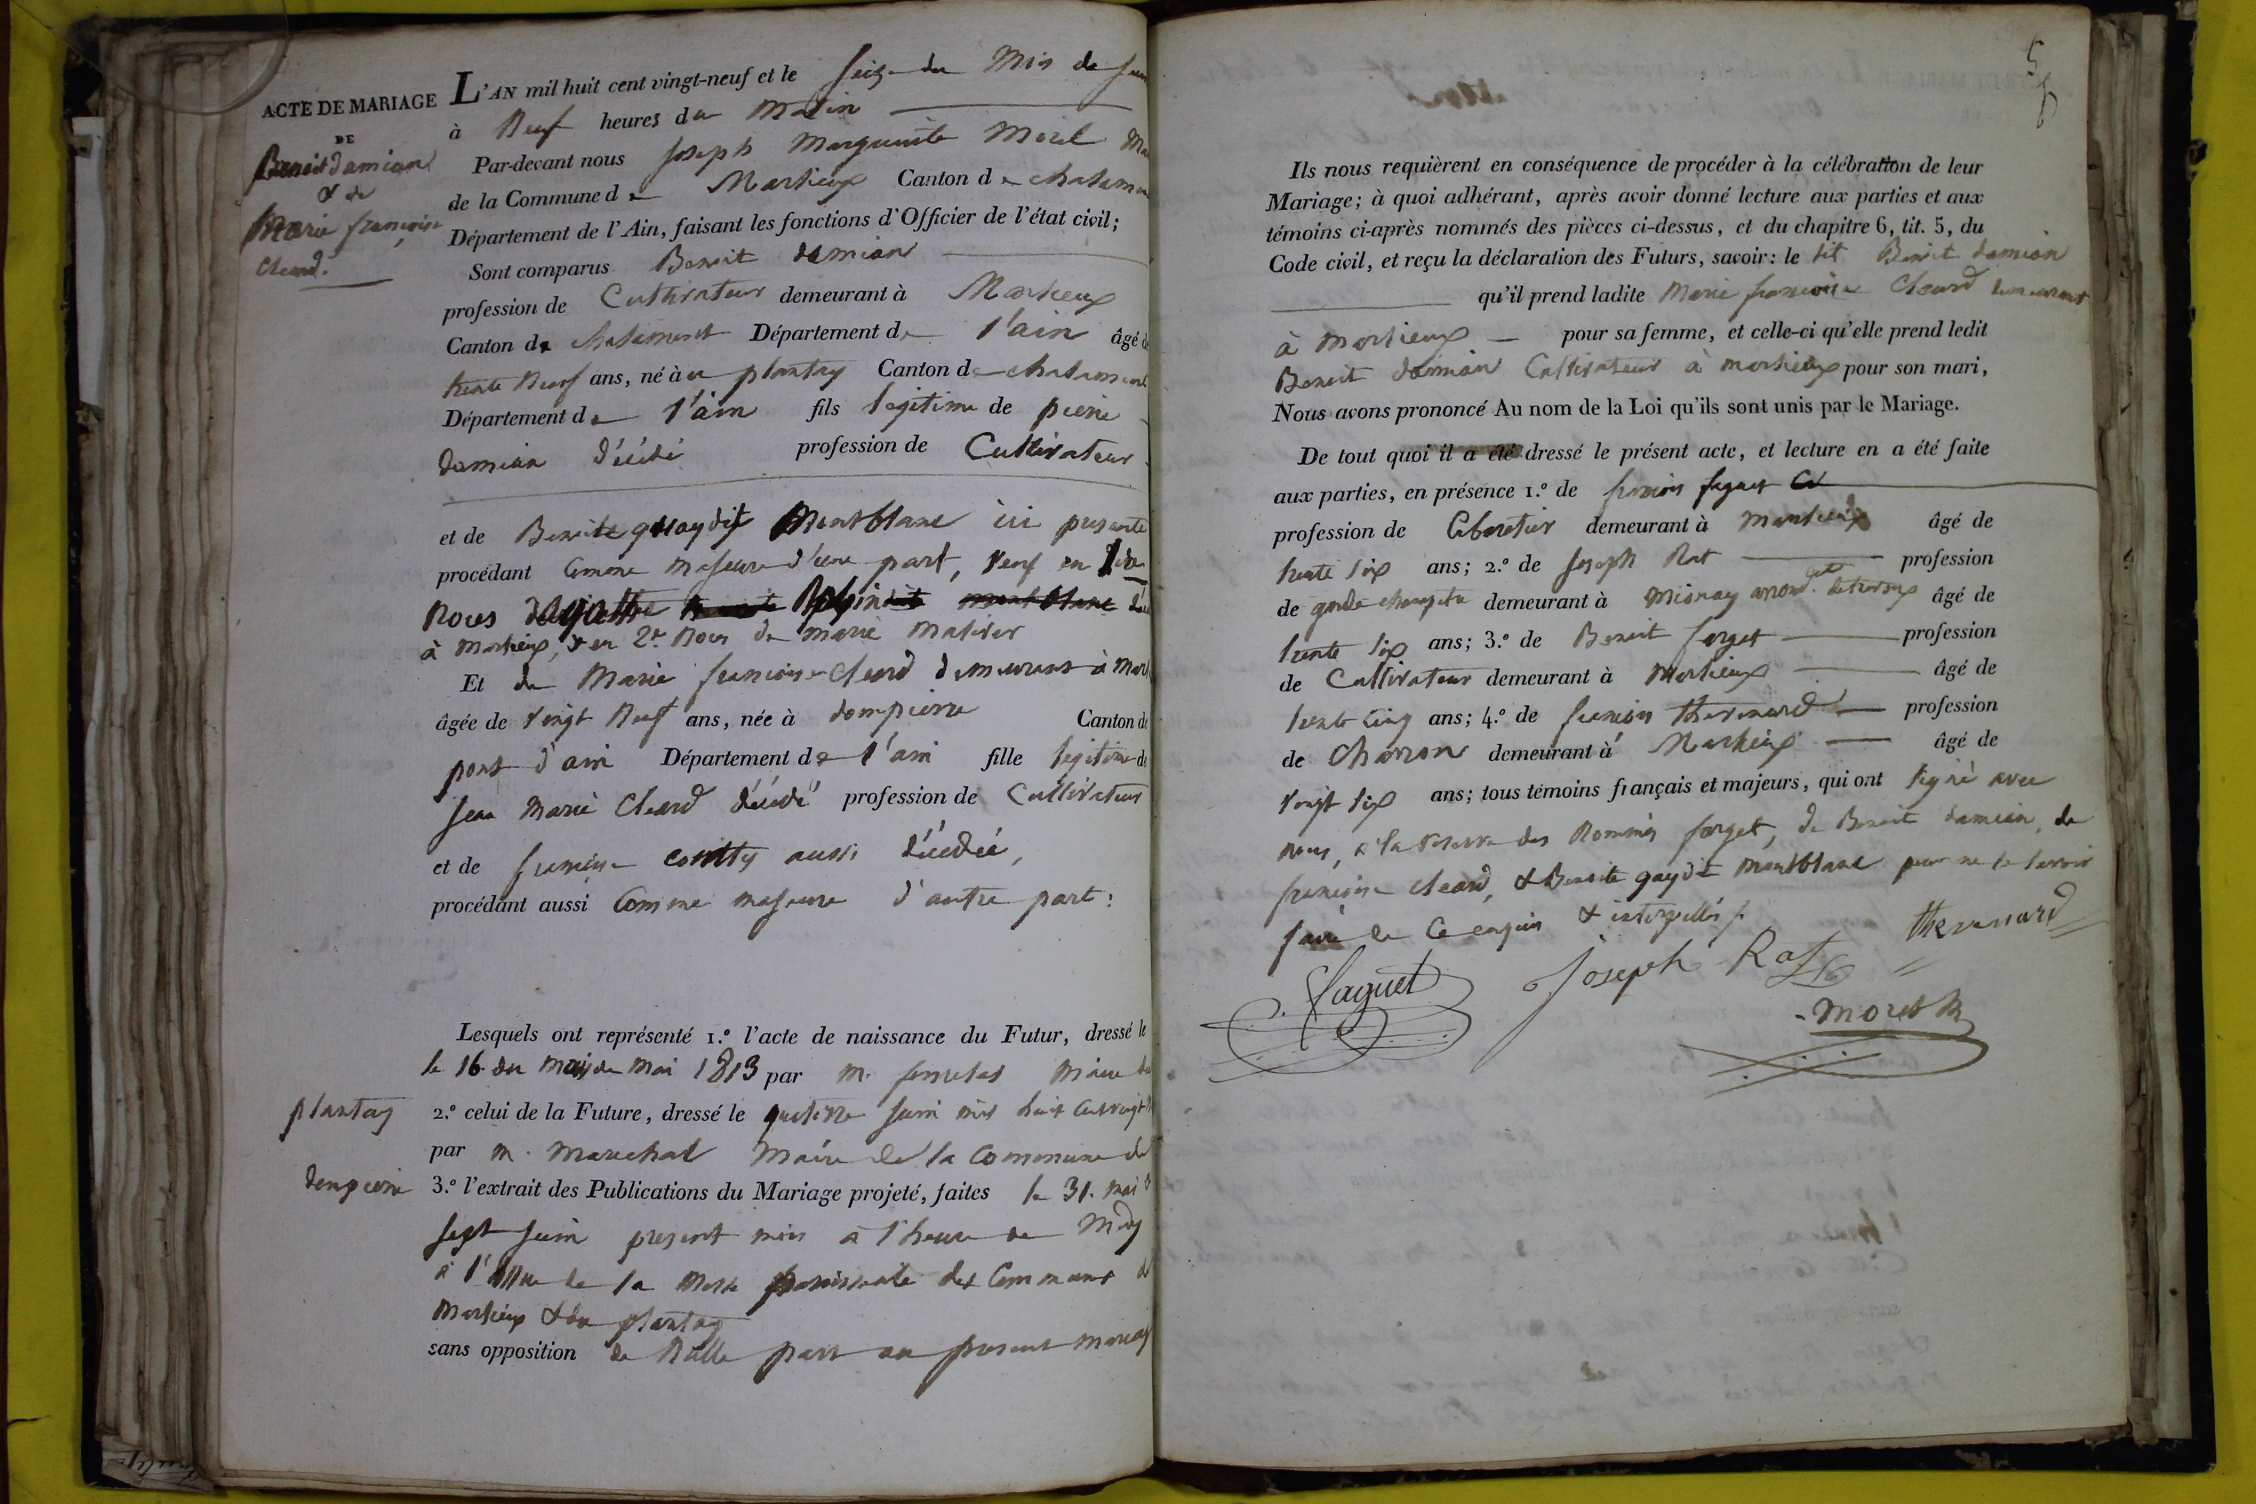 ACTE DE MARIAGE
DE
Benoit damian
& de
Marie françoise
Cleard.
L'AN mil huit cent vingt-neuf et le seize du Mois de Juin
à Neuf heures du Matin
Par-devant nous Joseph Marguerite Morel
de la Commune de Marlieux Canton de chalamont
Département de l'Ain, faisant les fonctions d'Officier de l'état civil;
Sont comparus Benoit damian
profession de Cultivateur demeurant à Marlieux
Canton de chalamont Département de l'ain âgé de
trente Neuf ans, né à u plantay Canton de chalamont
Département de l'ain fils legitime de pierre
damian décédé profession de Cultivateur
et de Benoite gay dit Montblanc ici presente
procédant Comme majeur d'une part, veuf en
Noces
à Marlieux, & en 2e. Noces de marie
Et de Marie françoise Cleard demeurant à
âgée de vingt Neuf ans, née à dompierre Canton de
pont d'ain Département de l'ain fille legitime de
Jean Marie Cleard décédé profession de Cultivateur
et de françoise aussi décédée,
procédant aussi Comme majeure d'autre part:
Lesquels ont représenté 1.º l'acte de naissance du Futur, dressé le
le 16 du mois de mai 1813 par m. Maire du
plantay
2.º celui de la Future, dressé le Juin mil huit Cent vingt
par m. Marechal Maire de la Commune de
dompierre
3.º l'extrait des Publications du Mariage projeté, faites le 31. mai &
sept Juin present mois à l'heure de Midy
à l'issue de la Messe paroissiale des Communes de
Marlieux & du plantay
sans opposition de Nulle part au present mariage
Ils nous requièrent en conséquence de procéder à la célébration de leur
Mariage; à quoi adhérant, après avoir donné lecture aux parties et aux
témoins ci-après nommés des pièces ci-dessus, et du chapitre 6, tit. 5, du
Code civil, et reçu la déclaration des Futurs, savoir: le dit Benoit damian
qu'il prend ladite Marie françoise Cleard demeurant
à Marlieux pour sa femme, et celle-ci qu'elle prend ledit
Benoit damian Cultivateur à marlieux pour son mari,
Nous avons prononcé Au nom de la Loi qu'ils sont unis par le Mariage.
De tout quoi il a été dressé le présent acte, et lecture en a été faite
aux parties, en présence 1.º de françois faguet
profession de Cabaretier demeurant à Marlieux âgé de
trente six ans; 2.º de Joseph Rat profession
de garde champetre demeurant à Mionay arrond. de trevoux âgé de
trente six ans; 3.º de Benoit forget profession
de Cultivateur demeurant à Marlieux âgé de
trente Cinq ans; 4.º de françois thevenard profession
de Charron demeurant à Marlieux âgé de
vingt six ans; tous témoins français et majeurs, qui ont signé avec
nous, à la reserve des Nommés forget, de Benoit damian, de
françoise Cleard, & Benoite gay dit Montblanc pour ne le savoir
faire de Ce enquis & interpellés /.
faguet Joseph Rat thevenard
Morel